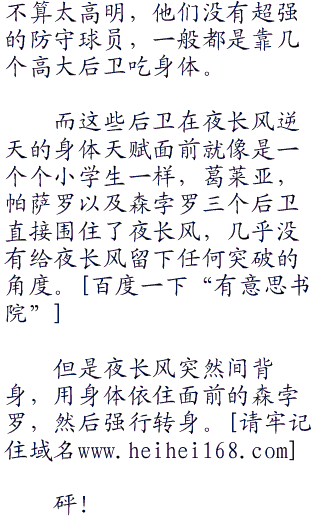 不算太高明，他们没有超强
的防守球员，一般都是靠几
个高大后卫吃身体。
而这些后卫在夜长风逆
天的身体天赋面前就像是一
个个小学生一样，葛莱亚，
帕萨罗以及森孛罗三个后卫
直接围住了夜长风，几乎没
有给夜长风留下任何突破的
角度。[百度一下“有意思书
院”]
但是夜长风突然间背
身，用身体依住面前的森孛
罗，然后强行转身。[请牢记
住域名www.heihei168.com]
砰！